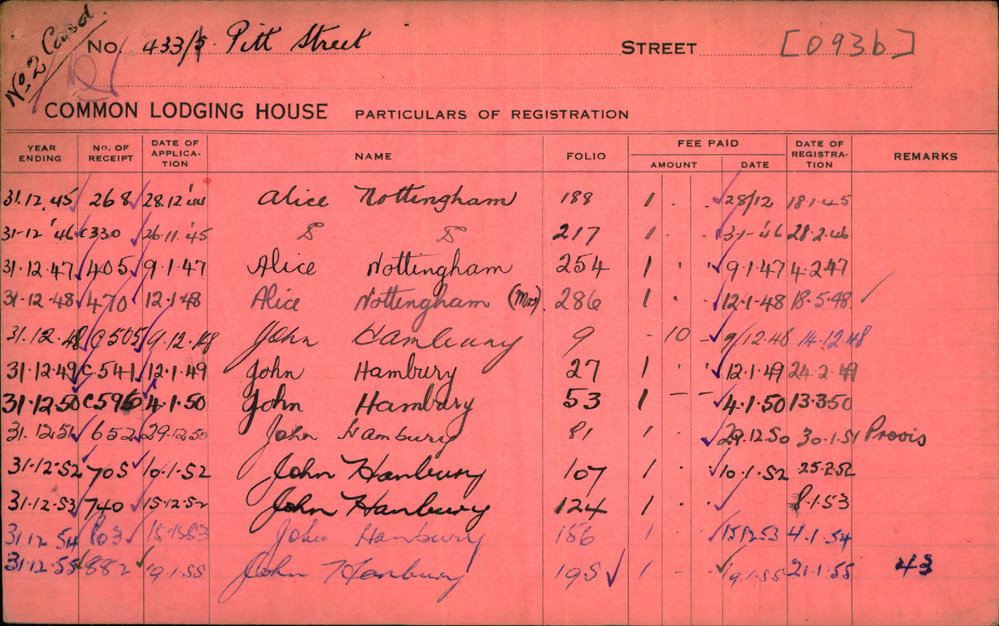 No. 2 Card
No. 433/5 Pitt Street STREET [093b]
COMMON LODGING HOUSE PARTICULARS OF REGISTRATION
YEAR ENDING NO. OF RECEIPT DATE OF APPLICA-TION NAME FOLIO FEE PAID AMOUNT DATE DATE OF REGISTRA-TION REMARKS
31.12.45 268 28.12.44 Alice Nottingham 189 1 . . 28/12 18.1.45
31-12 '46 C330 26.11.'45 217 1 . . 3-1-'46 28.2.46
31.12.47 405 9.1.47 Alice Nottingham 254 1 . . 9.1.47 4.2.47
31.12.48 470 12.1.48 Alice Nottingham (Mrs) 286 1 . . 12.1.48 18.5.48 ✓
31.12.48 C505 9.12.48 John Hambury 9 - 10 - 9/12.48 14.12.48
31.12.49 C541 12.1.49 John Hambury 27 1 . . 12.1.49 24.2.49
31.12.50 C596 4.1.50 John Hambury 53 1 - - 4.1.50 13.3.50
31.12.51 652 29.12.50 John Hambury 81 1 . . 29.12.50 30.1.51 Provis
31.12.52 705 10.1.52 John Hanbury 107 1 . . 10.1.52 25.2.52
31.12.53 740 15.12.52 John Hanbury 124 1 . . 8.1.53
31.12.54 803 John Hanbury 156 1 . . 15.12.53 4.1.54
31.12.55 882 19.1.55 John Hanbury 195 1 - . 19.1.55 21.1.55 43